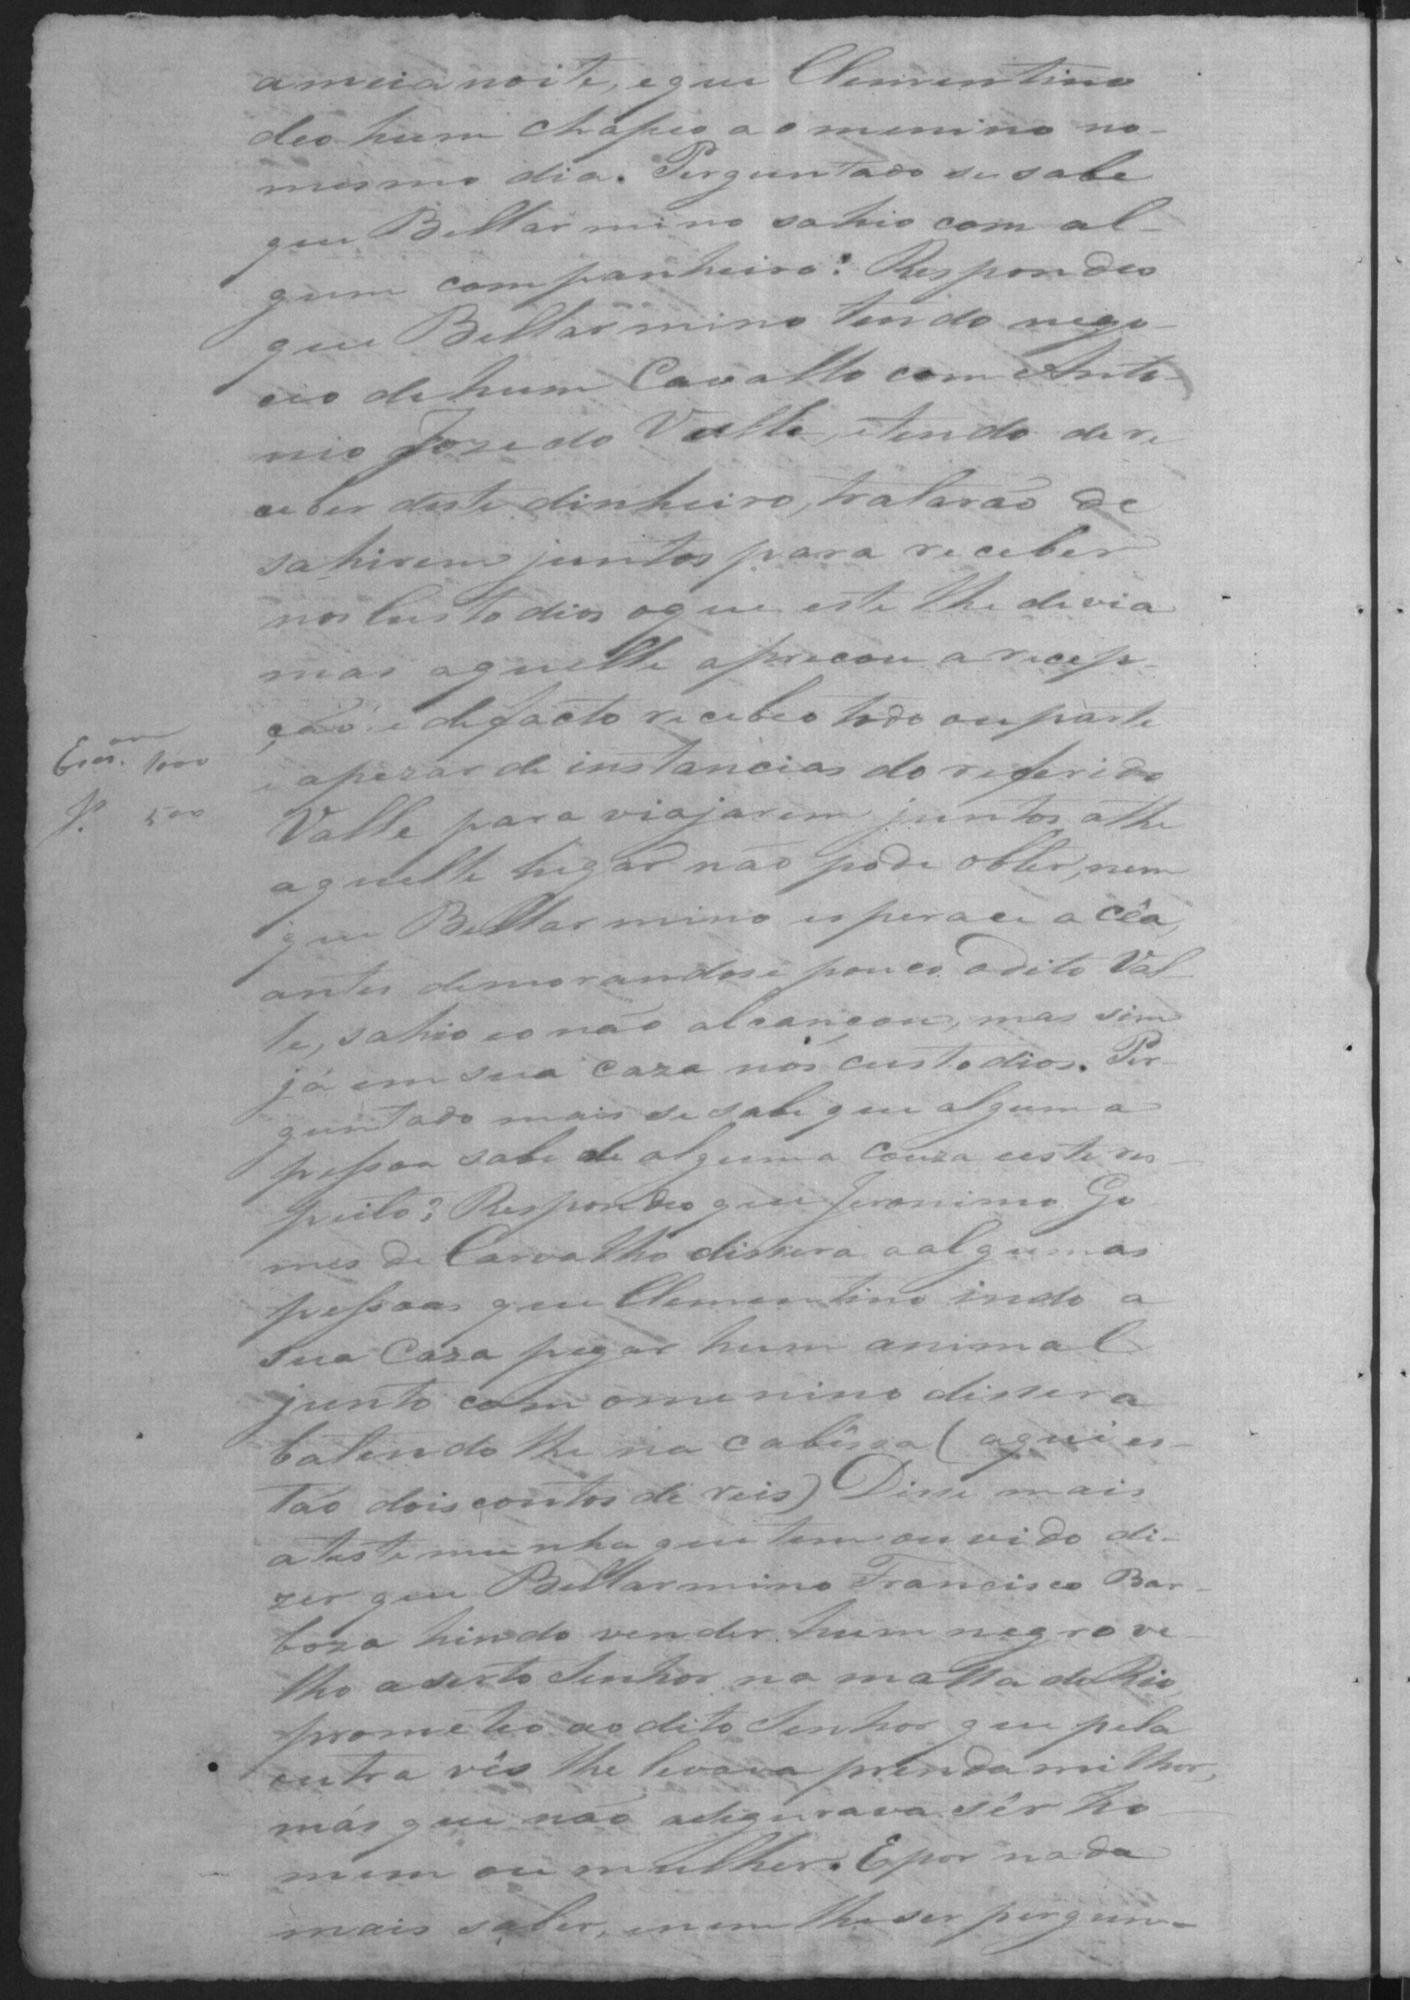 a meia noite, e que Clementino
deo hum chapeo a o menino no
mesmo dia. Perguntado se sabe
que Bellarmino sahio com al-
gum companheiro? Respondeo
que Bellarmino tendo nego-
cio de hum Cavallo com Anto-
nio Joze do Valle, e tendo de re
ceber deste dinheiro, tratarão de
sahirem juntos para receber
nos Custodios o que este lhe devia
mas aquelle apreçou a recep-
ção e de facto recebeo todo ou parte
e apezar de instancias do referido
Valle para viajarem juntos athe
aquelle lugar não pode obter, nem
que Bellarmino esperace a cêa,
antes demorandose pouco o dito Val
le, sahio e o não alcançou, mas sim
já em sua caza nos custodios. Per-
guntado mais se sabe que alguma
pessoa sabe de alguma couza a este res-
peito? Respondeo que Jeronimo Go
mes de Carvalho dissera a algumas
pessoas que Clementino indo a
sua Caza pegar hum animal
junto com o menino dissera
batendo lhe na cabêssa (aqui es-
tão dois contos de reis) Disse mais
a testemunha que tem ouvido di-
zer que Bellarmino Francisco Bar-
boza hindo vender hum negro ve-
lho a serto Senhor na matta do Rio,
prometeo ao dito Senhor que pela
outra vês lhe levava prenda milhor,
más que não asegurava sêr ho
mem ou mulher. E por nada
mais saber, e nem lhe ser pergun-
1000
500